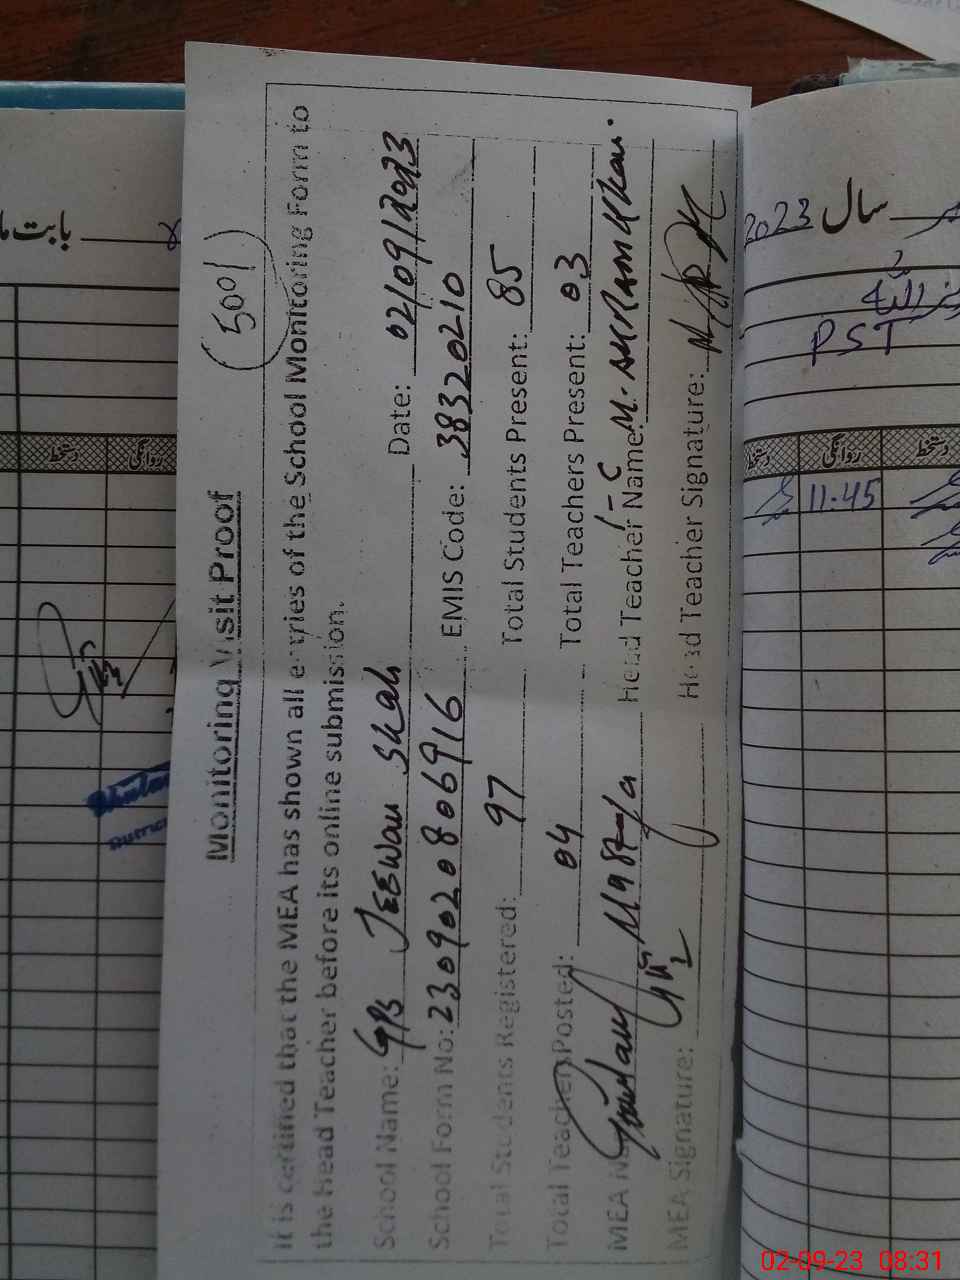 (5001)
Monitoring Visit Proof
It is certified that the MEA has shown all entries of the School Monitoring Form to
the Head Teacher before its online submission.
School Name: GPS JEEWAN SHAH Date: 02/09/2023
School Form No: 2309020806916 EMIS Code: 38320210
Total Students Registered: 97 Total Students Present: 85
Total Teachers Posted: 04 Total Teachers Present: 03
I-C
MEA Ghulam Head Teacher Name: M. Khan.
MEA Signature: Head Teacher Signature:
بابت
2023 سال
PST
دستخط روانگی
دستخط روانگی دستخط
11:45
02-09-23 08:31